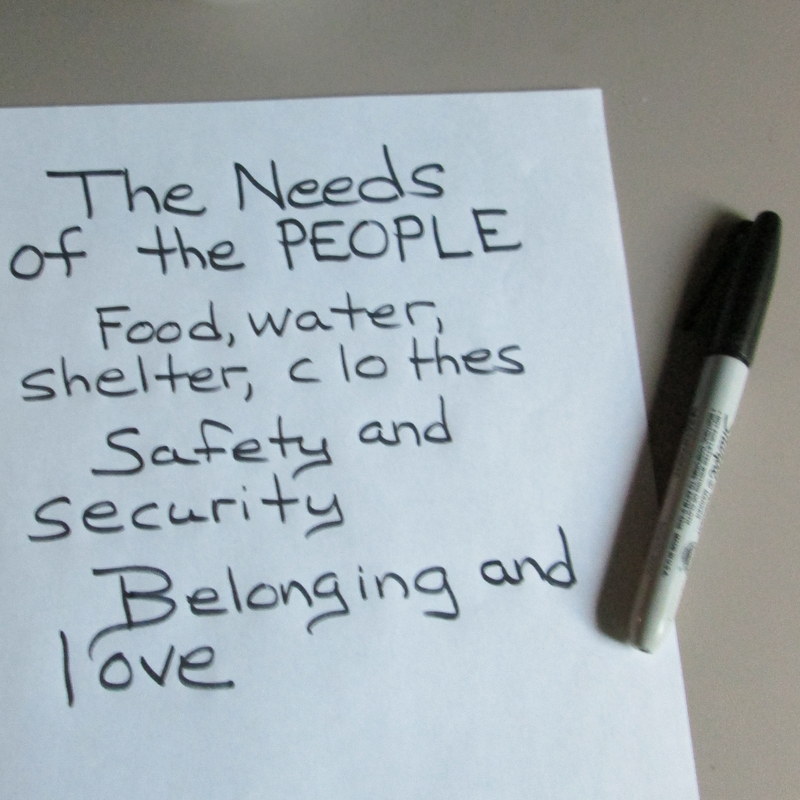 The Needs
of the PEOPLE
Food, water,
shelter, clothes
Safety and
security
Belonging and
love